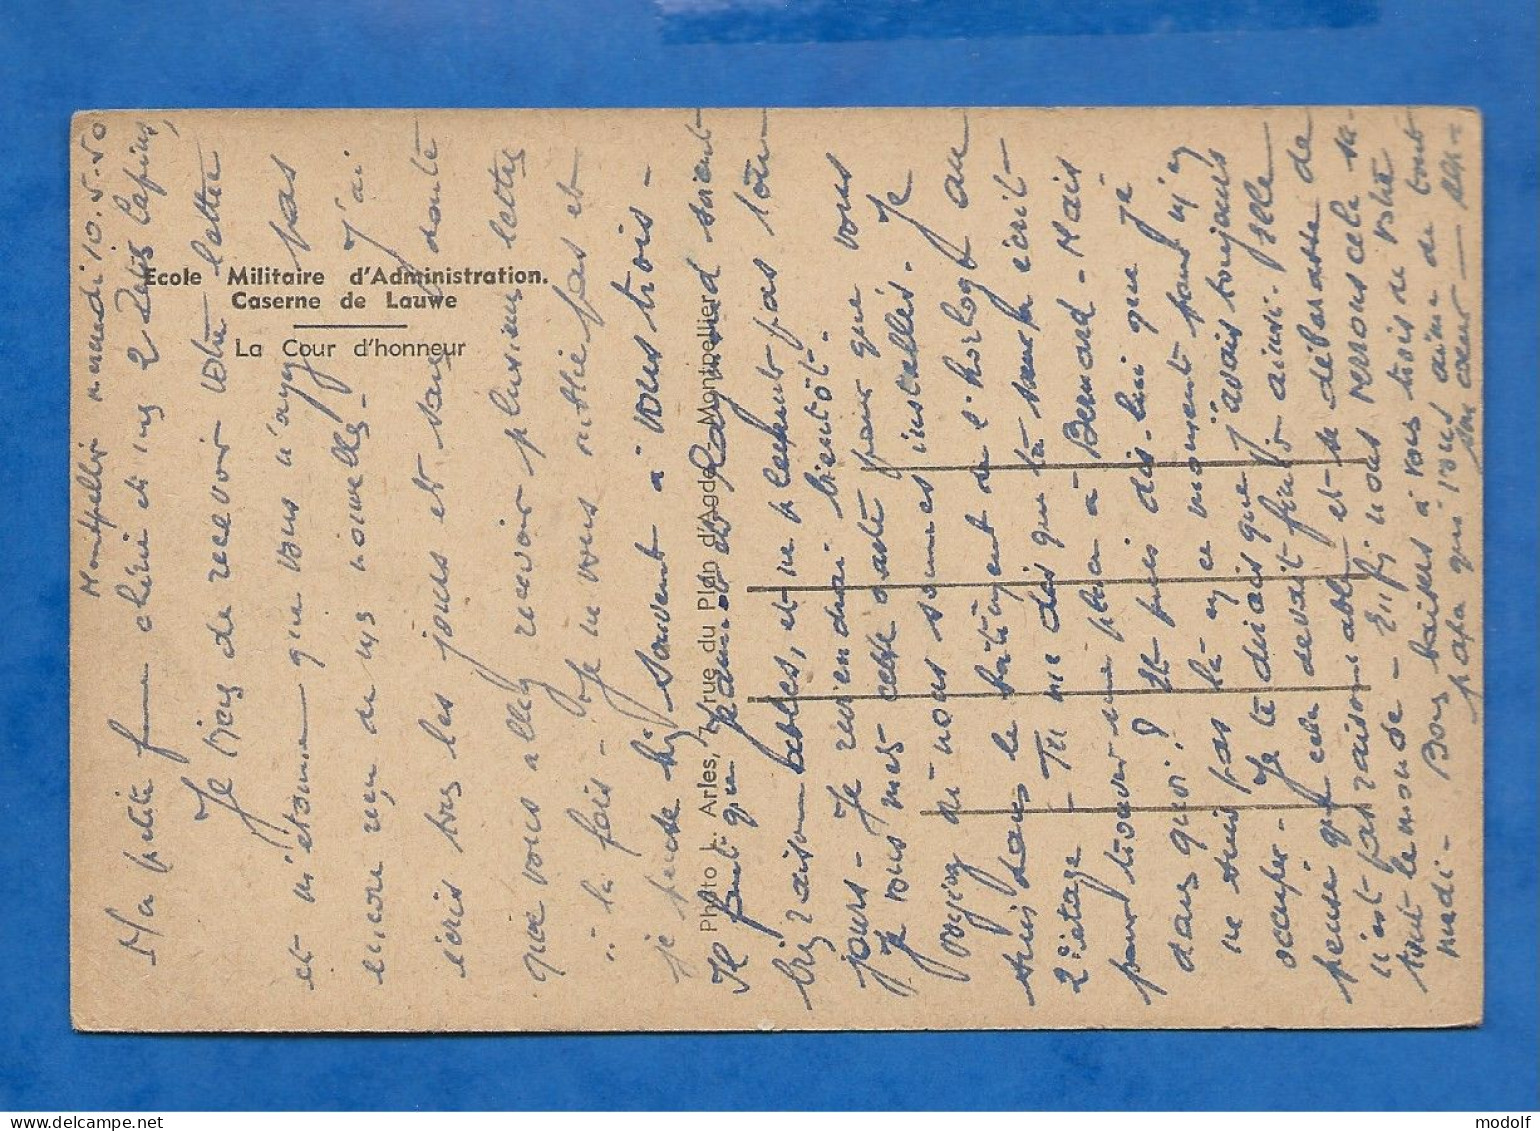 Ecole Militaire d'Administration.
Caserne de Lauwe
La Cour d'honneur
Photo L. Arles, 7, rue du Plan d'Agde, Montpellier
Montpellier mardi 10.5.50
Ma petite chérie et mes 2 Zous Lapins,
Je viens de recevoir votre lettre
et m'étonne que vous n'ayez pas
encore reçu de mes nouvelles - J'ai
écris tous les jours et sans doute
que vous allez recevoir plusieurs lettres
à la fois - Je ne vous oublie pas et
je pense bien souvent à vous trois -
Il faut que et soient
bien raisonnables, et ne pleurent pas
jours - Je reviendrai bientôt.
Je vous mets cette carte pour que vous
voyiez où nous sommes installés. Je
suis dans le bâtiment de l'horloge au
2e étage - Tu me dis que ta sœur écrit
pour trouver une place à Bernard - Mais
dans quoi? Et puis dis-lui que je
ne suis pas là en ce moment pour m'en
occuper - Je te dirais que j'avais toujours
pensé que cela devait finir ainsi. Elle
n'est pas raisonnable et se débarasse de
tout le monde - Enfin nous verrons cela
mardi - Bons baisers à vous trois de votre
papa qui vous aime de tout
son cœur
www.delcampe.net
modolf